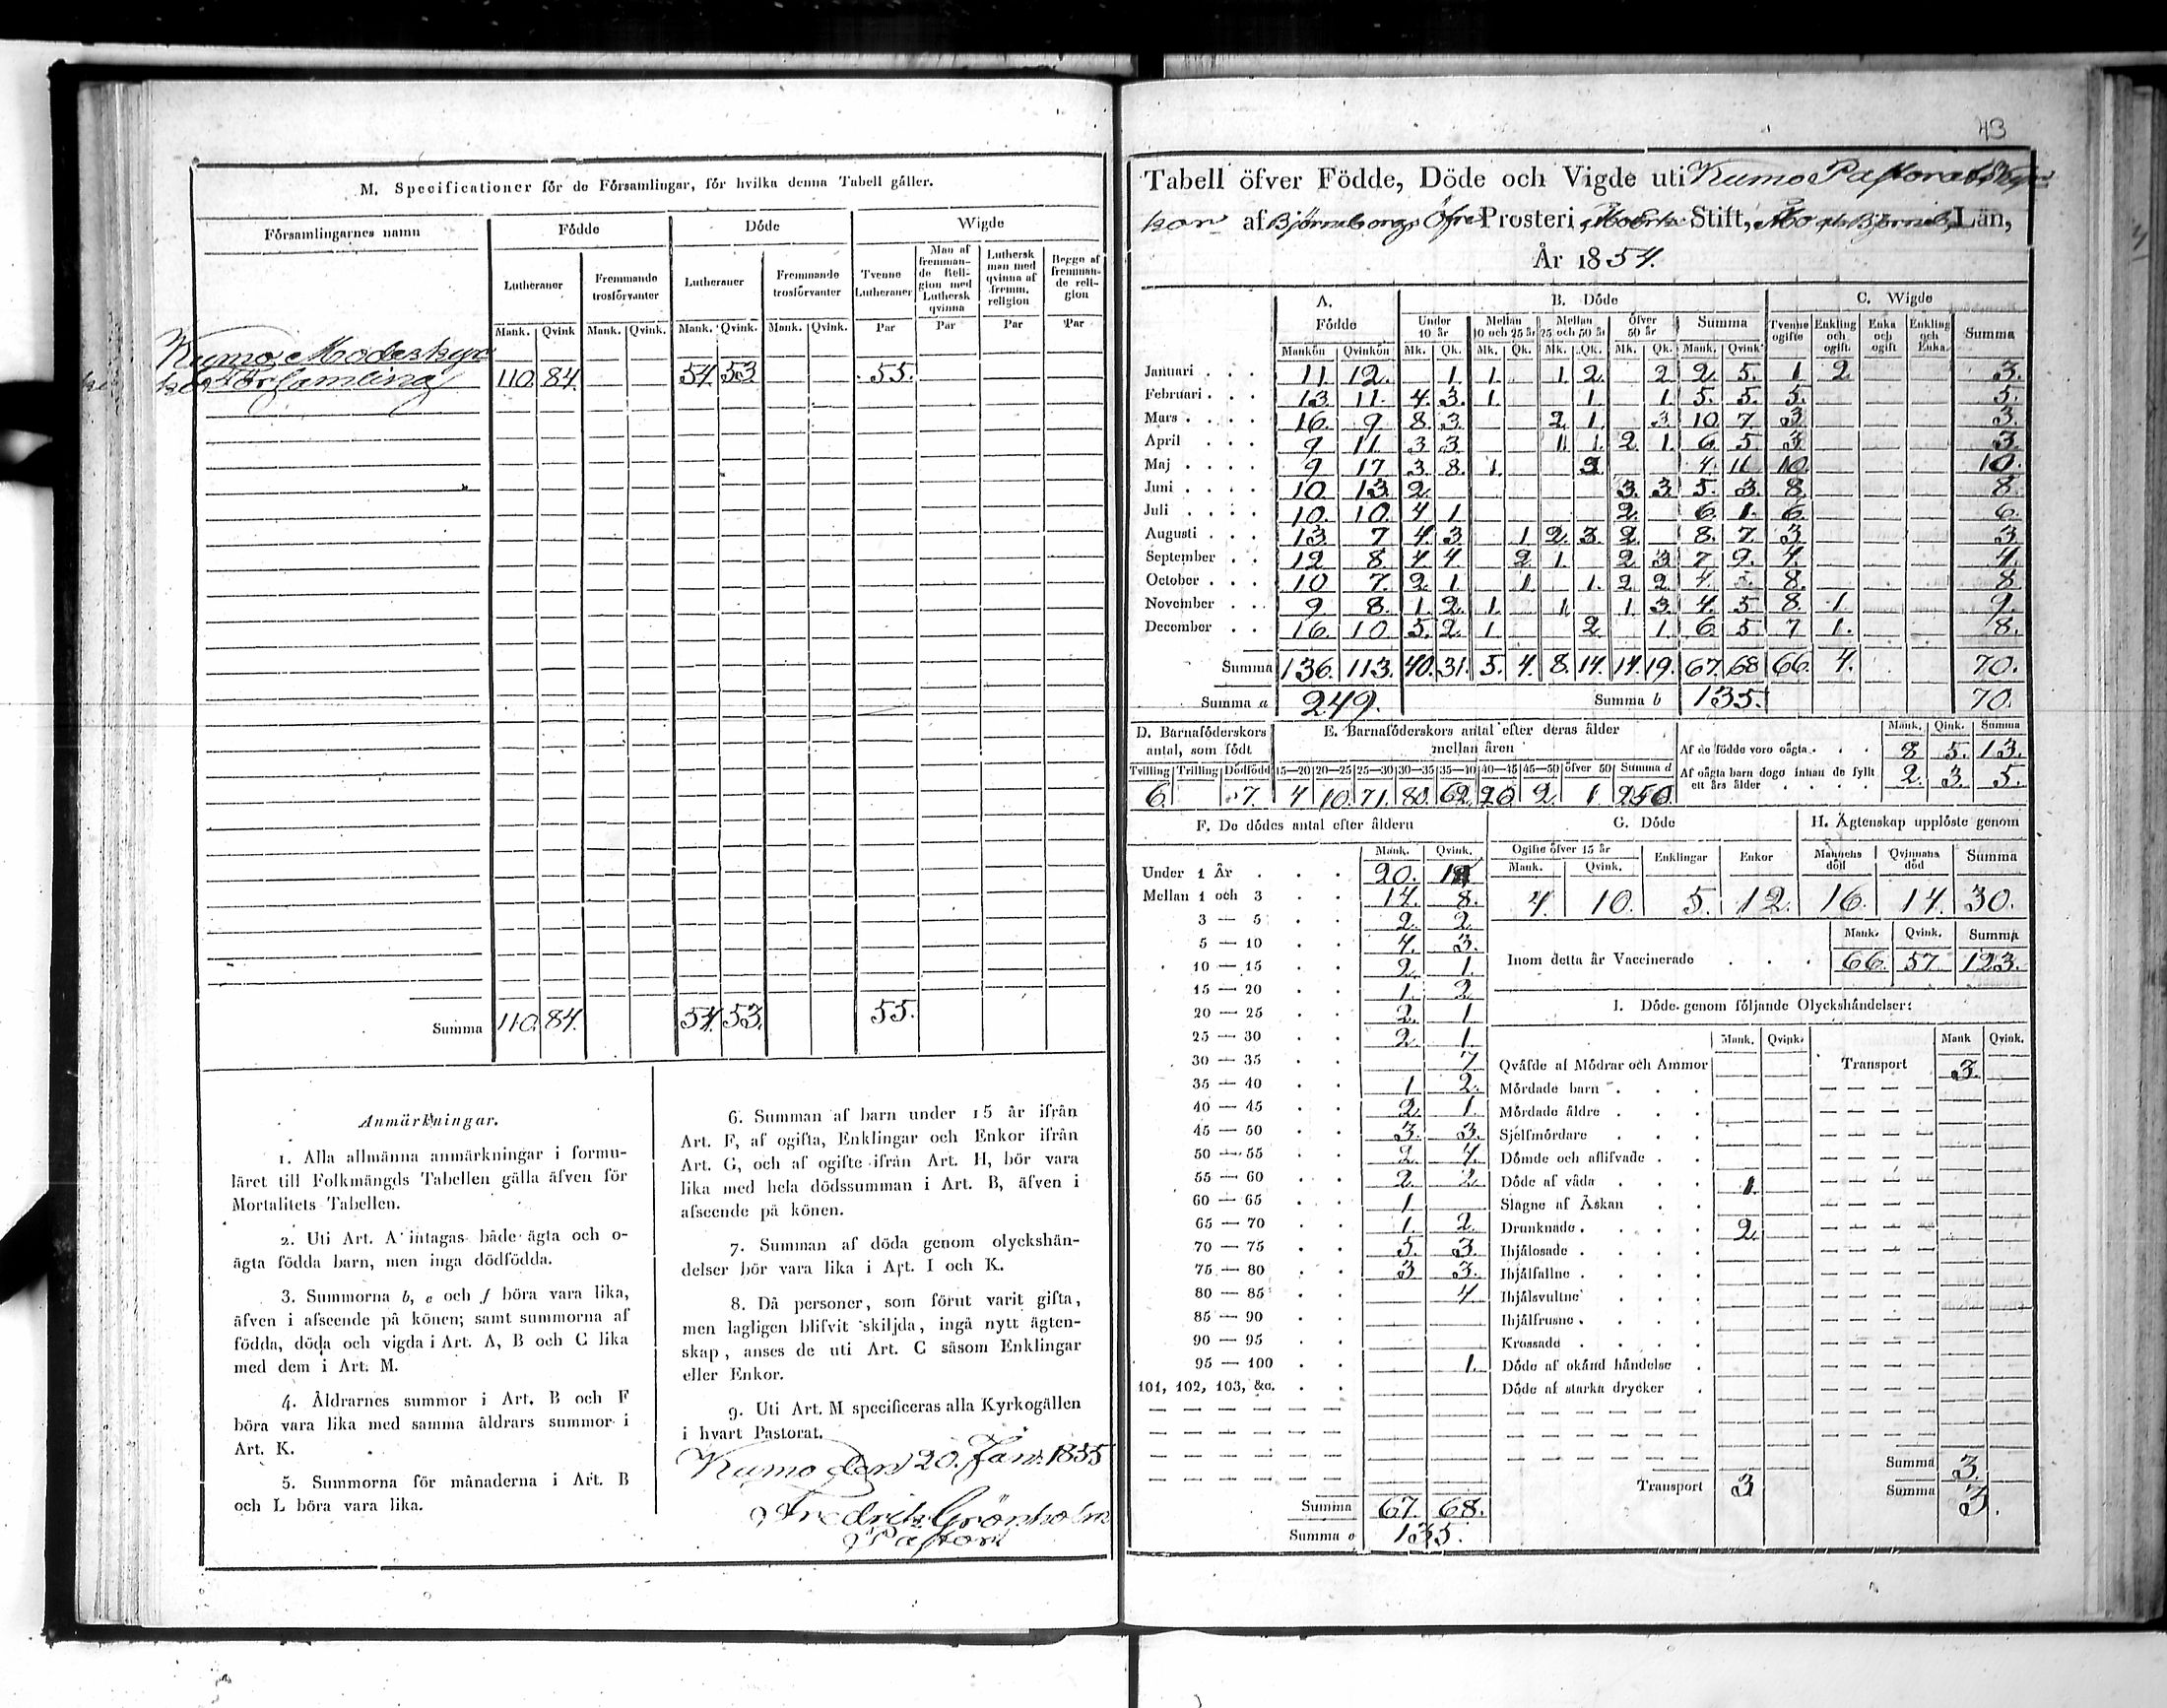 M. Specificationer för de Församlingar, för hvilka denna Tabell gäller.
Församlingarnes namn | Födde | Döde | Wigde
Lutheraner | Fremmande trosförvanter | Lutheraner | Fremmande trosförvanter | Tvenne Lutheraner | Man af fremmande Religion med Luthersk qvinna | Luthersk man med qvinna af fremm. religion | Begge af fremmande religion
Mank. | Qvink | Mank. | Qvink. | Mank. | Qvink. | Mank. | Qvink. | Par | Par | Par | Par
Kumo Moderkyr
ko Församling 110. 84. 54. 53 55.
Summa 110. 84. 54. 53. 55.
Anmärkningar.
1. Alla allmänna anmärkningar i formu-
läret till Folkmängds Tabellen gälla äfven för
Mortalitets Tabellen.
2. Uti Art. A intagas både ägta och o-
ägta födda barn, men inga dödfödda.
3. Summorna b, e och f böra vara lika,
äfven i afseende på könen; samt summorna af
födda, döda och vigda i Art. A, B och C lika
med dem i Art. M.
4. Åldrarnes summor i Art. B och F
böra vara lika med samma åldrars summor i
Art. K.
5. Summorna för månaderna i Art. B
och L böra vara lika.
6. Summan af barn under 15 år ifrån
Art. F, af ogifta, Enklingar och Enkor ifrån
Art. G, och af ogifte ifrån Art. H, bör vara
lika med hela dödssumman i Art. B, äfven i
afseende på könen.
7. Summan af döda genom olyckshän-
delser bör vara lika i Art. I och K.
8. Då personer, som förut varit gifta,
men lagligen blifvit skiljda, ingå nytt ägten-
skap, anses de uti Art. C såsom Enklingar
eller Enkor.
9. Uti Art. M specificeras alla Kyrkogällen
i hvart Pastorat.
Kumo den 20. Jan. 1855
Fredrik Grönholm
Pastor
43
Tabell öfver Födde, Döde och Vigde uti Kumo Pastorat
kor af Björneborgs Öfre Prosteri, Åbo Erke Stift, Åbo och Björneb. Län,
År 1854.
A. Födde | B. Döde | C. Wigde
Under 10 år | Mellan 10 och 25 år | Mellan 25 och 50 år | Öfver 50 år | Summa | Tvenne ogifte | Enkling och ogift. | Enka och ogift | Enkling och Enka | Summa
Mankön | Qvinkön | Mk. | Qk. | Mk. | Qk. | Mk. | Qk. | Mk. | Qk. | Mank. | Qvink
Januari 11 12. 1. 1. 1. 2. 2 2. 5. 1 2 3.
Februari 13 11. 4. 3. 1. 1. 1. 5. 5. 5. 5.
Mars 16. 9 8. 3. 2. 1. 3. 10 7 3 3.
April 9 11. 3 3 1. 1. 2 1. 6. 5 3 3.
Maj 9 17 3. 8. 1. 3. 4. 11 10. 10.
Juni 10 13. 2. 3. 3. 5. 3. 8. 8.
Juli 10. 10. 4 1 2. 6. 1. 6. 6.
Augusti 13 7 4. 3. 1 2. 3. 2. 8. 7. 3 3
September 12 8. 4 4. 2. 1. 2. 3. 7 9. 4. 4.
October 10 7. 2. 1. 1 1. 2. 2. 4. 8. 8
November 9 8. 1. 2. 1. 1. 1 3. 4. 5 8. 1. 9.
December 16. 10 5. 2. 1. 2. 1. 6. 5. 7 1. 8.
Summa 136. 113. 40. 31. 5. 4. 8. 14. 14. 19. 67. 68 66. 4. 70.
Summa a 249. Summa b 135. 70.
D. Barnaföderskors antal, som födt
Tvilling | Trilling | Dödfödd
6. 7.
E. Barnaföderskors antal efter deras ålder mellan åren
15—20 | 20—25 | 25—30 | 30—35 | 35—40 | 40—45 | 45—50 | öfver 50 | Summa d
4 10. 71. 80. 62. 20 2. 1. 250.
Mank. | Qink. | Summa
Af de födde voro oägta 8 5. 13.
Af oägta barn dogo innan de fyllt
ett års ålder 2. 3. 5.
F. De dödes antal efter åldern
Mank. | Qvink.
Under 1 År 20. 18
Mellan 1 och 3 14. 8.
3 — 5 2. 2
5 — 10 4. 3.
10 — 15 2. 1.
15 — 20 1. 2
20 — 25 2. 1
25 — 30 2. 1.
30 — 35 7
35 — 40 1 2.
40 — 45 2. 1.
45 — 50 3. 3.
50 — 55 2. 4.
55 — 60 2. 2.
60 — 65 1.
65 — 70 1. 2.
70 — 75 5. 3.
75 — 80 3 3.
80 — 85 4
85 — 90
90 — 95
95 — 100 1.
101, 102, 103, &c.
Summa 67. 68.
Summa e 135.
G. Döde
Ogifte öfver 15 år | Enklingar | Enkor
Mank. | Qvink.
4. 10. 5. 12.
H. Ägtenskap upplöste genom
Mannens död | Qvinnans död | Summa
16. 14. 30.
Mank. | Qvink. | Summa
Inom detta år Vaccinerade 66. 57 123.
I. Döde genom följande Olyckshändelser:
Mank. | Qvink. | Mank | Qvink.
Qväfde af Mödrar och Ammor Transport 3.
Mördade barn
Mördade äldre
Sjelfmördare
Dömde och aflifvade
Döde af våda 1.
Slagne af Åskan
Drunknade 2.
Ihjälosade
Ihjälfallne
Ihjälsvultne
Ihjälfrusne
Krossade
Döde af okänd händelse
Döde af starka drycker
Summa 3.
Transport 3 Summa 3.